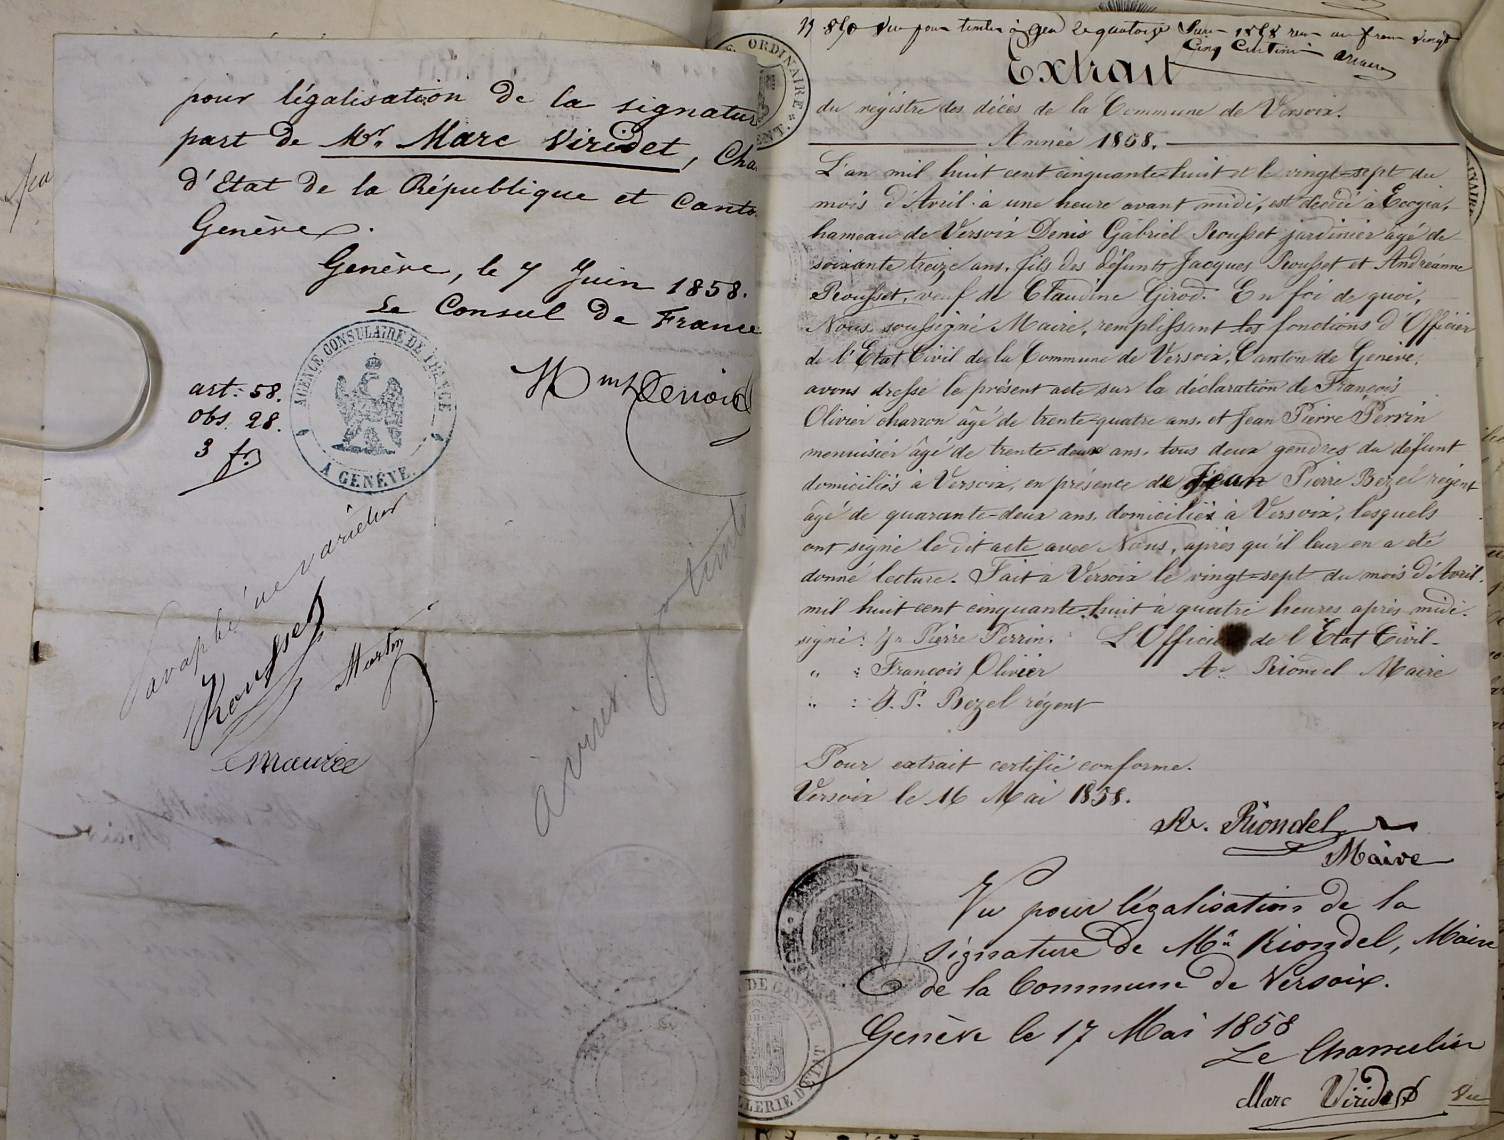 pour légalisation de la signatur
part de Mr. Marc Viridet, Cha
d'Etat de la République et Canto
Genève.
Genève, le 7 Juin 1858.
Le Consul De France
AGENCE CONSULAIRE DE FRANCE
A GENÈVE.
art: 58.
obs. 28.
3 f.
Paraphé ne varietur
Rousset
Martin
Emaurice
à viser pour timbre
ORDINAIRE
Vu pour timbre à Gex le quatorze Juin 1858 reçu un franc vingt
cinq centimes
Extrait
du régistre des décès de la Commune de Versoix.
Année 1858.
L'an mil huit cent cinquante-huit et le vingt-sept du
mois d'Avril à une heure avant midi, est décédé à Ecogia,
hameau de Versoix Denis Gabriel Rousset jardinier âgé de
soixante treize ans, fils des défunts Jacques Rousset et Andréanne
Rousset, veuf de Claudine Girod. En foi de quoi,
Nous soussigné Maire, remplissant les fonctions d'Officier
de l'Etat Civil de la Commune de Versoix, Canton de Genève,
avons dressé le présent acte sur la déclaration de François
Olivier charron âgé de trente-quatre ans, et Jean Pierre Perrin
menuisier âgé de trente-deux ans, tous deux gendres du défunt
domiciliés à Versoix, en présence de Jean Pierre Bezel régent
âgé de quarante-deux ans, domicilié à Versoix, lesquels
ont signé le dit acte avec Nous, après qu'il leur en a été
donné lecture. Fait à Versoix le vingt-sept du mois d'Avril
mil huit cent cinquante-huit à quatre heures après midi.
signé: Jn Pierre Perrin. L'Officier de l'Etat Civil
" : François Olivier Riondel Maire
" : J. P. Bezel régent
Pour extrait certifié conforme.
Versoix le 16 Mai 1858.
Riondel
Maire
Vu pour légalisation de la
signature de Mr. Riondel, Maire
de la Commune de Versoix.
Genève le 17 Mai 1858
Le Chancelier
Marc Viridet
DE GENÈVE